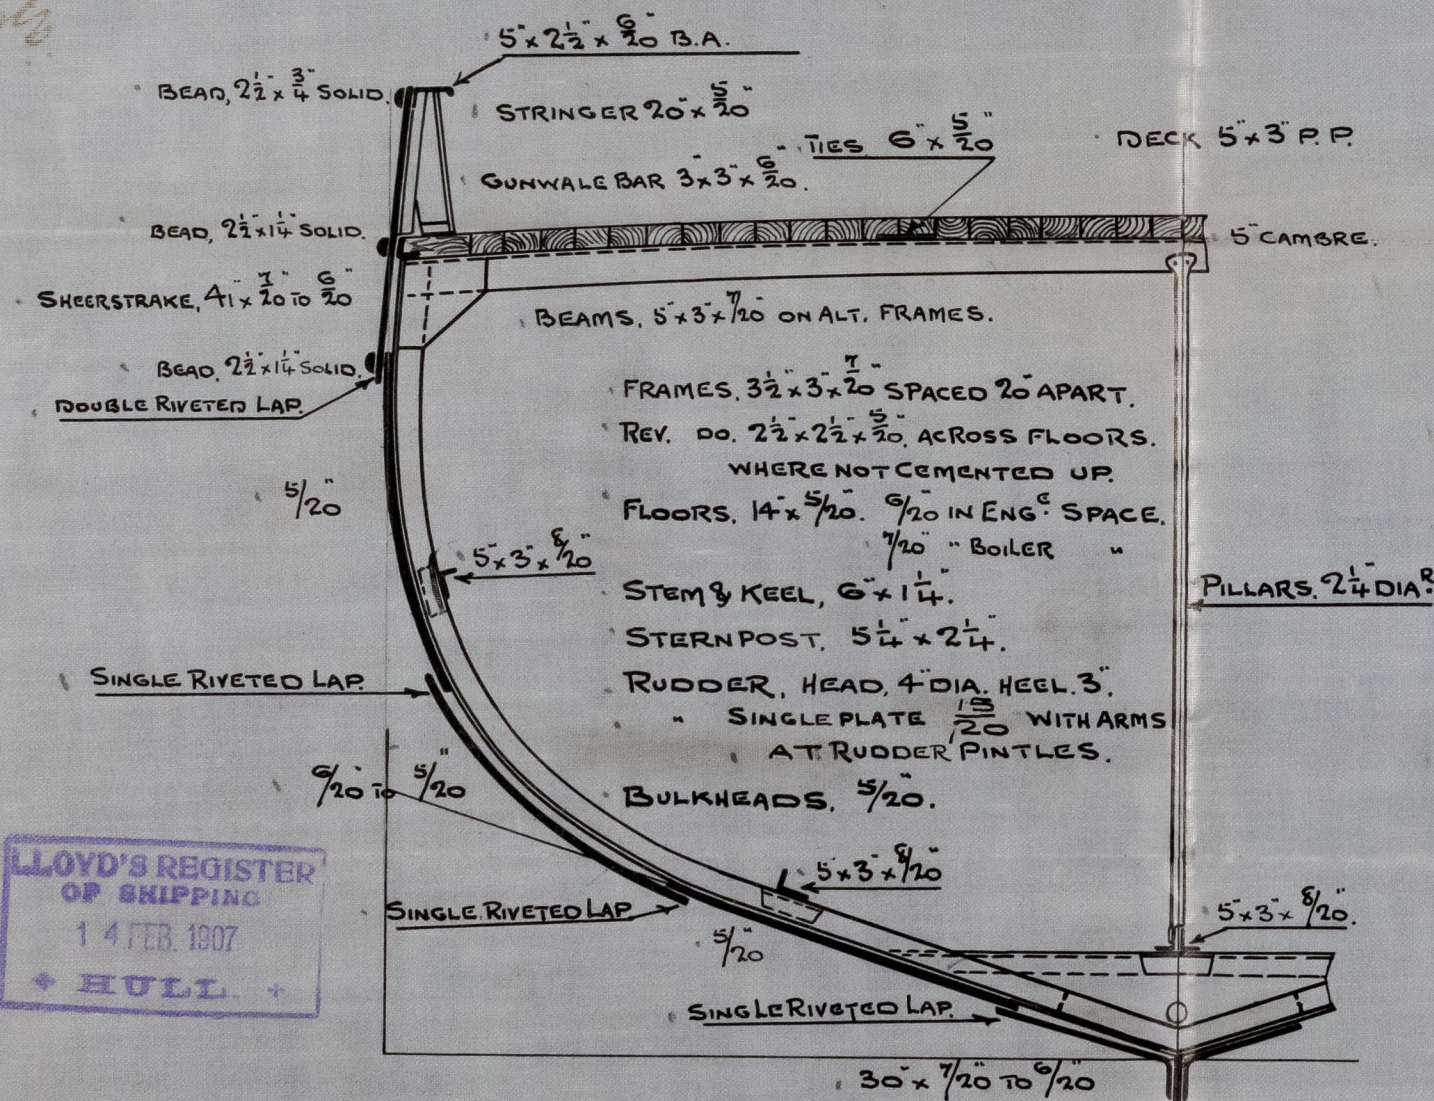 5" × 2½" × 6/20" B.A.
BEAD, 2½" × ¾" SOLID.
STRINGER 20" × 5/20"
TIES 6" × 5/20"
DECK 5" × 3" P.P.
GUNWALE BAR 3" × 3" × 6/20".
BEAD, 2½" × 1¼" SOLID.
5" CAMBRE.
SHEERSTRAKE, 41" × 7/20" TO 6/20"
BEAMS, 5" × 3" × 7/20" ON ALT. FRAMES.
BEAD, 2½" × 1¼" SOLID.
DOUBLE RIVETED LAP.
FRAMES, 3½" × 3" × 7/20" SPACED 20" APART.
REV. DO. 2½" × 2½" × 5/20", ACROSS FLOORS.
WHERE NOT CEMENTED UP.
5/20"
FLOORS, 14" × 5/20". 6/20" IN ENGE. SPACE.
7/20" " BOILER "
5" × 3" × 8/20"
STEM & KEEL, 6" × 1¼".
PILLARS, 2¼" DIAR.
STERNPOST, 5¼" × 2¼".
SINGLE RIVETED LAP.
RUDDER, HEAD, 4" DIA. HEEL. 3".
" SINGLE PLATE 15/20" WITH ARMS
AT RUDDER PINTLES.
6/20" TO 5/20"
BULKHEADS, 5/20".
LLOYD'S REGISTER
OF SHIPPING
14 FEB. 1907
+ HULL +
5" × 3" × 8/20"
SINGLE RIVETED LAP
5" × 3" × 8/20".
5/20"
SINGLE RIVETED LAP.
30" × 7/20" TO 6/20"